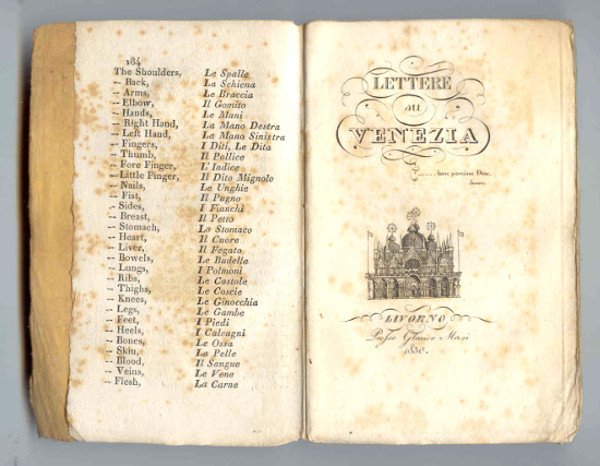 184
The Shoulders, Le Spalle
-- Back, La Schiena
-- Arms, Le Braccia
-- Elbow, Il Gomito
-- Hands, Le Mani
-- Right Hand, La Mano Destra
-- Left Hand, La Mano Sinistra
-- Fingers, I Diti, Le Dita
-- Thumb, Il Pollice
-- Fore Finger, L'Indice
-- Little Finger, Il Dito Mignolo
-- Nails, Le Unghie
-- Fist, Il Pugno
-- Sides, I Fianchi
-- Breast, Il Petto
-- Stomach, Lo Stomaco
-- Heart, Il Cuore
-- Liver, Il Fegato
-- Bowels, Le Budella
-- Lungs, I Polmoni
-- Ribs, Le Costole
-- Thighs, Le Coscie
-- Knees, Le Ginocchia
-- Legs, Le Gambe
-- Feet, I Piedi
-- Heels, I Calcagni
-- Bones, Le Ossa
-- Skin, La Pelle
-- Blood, Il Sangue
-- Veins, Le Vene
-- Flesh, La Carne
LETTERE
su
VENEZIA
posuisse Deos.
LIVORNO
Presso Glauco Masi
1830.